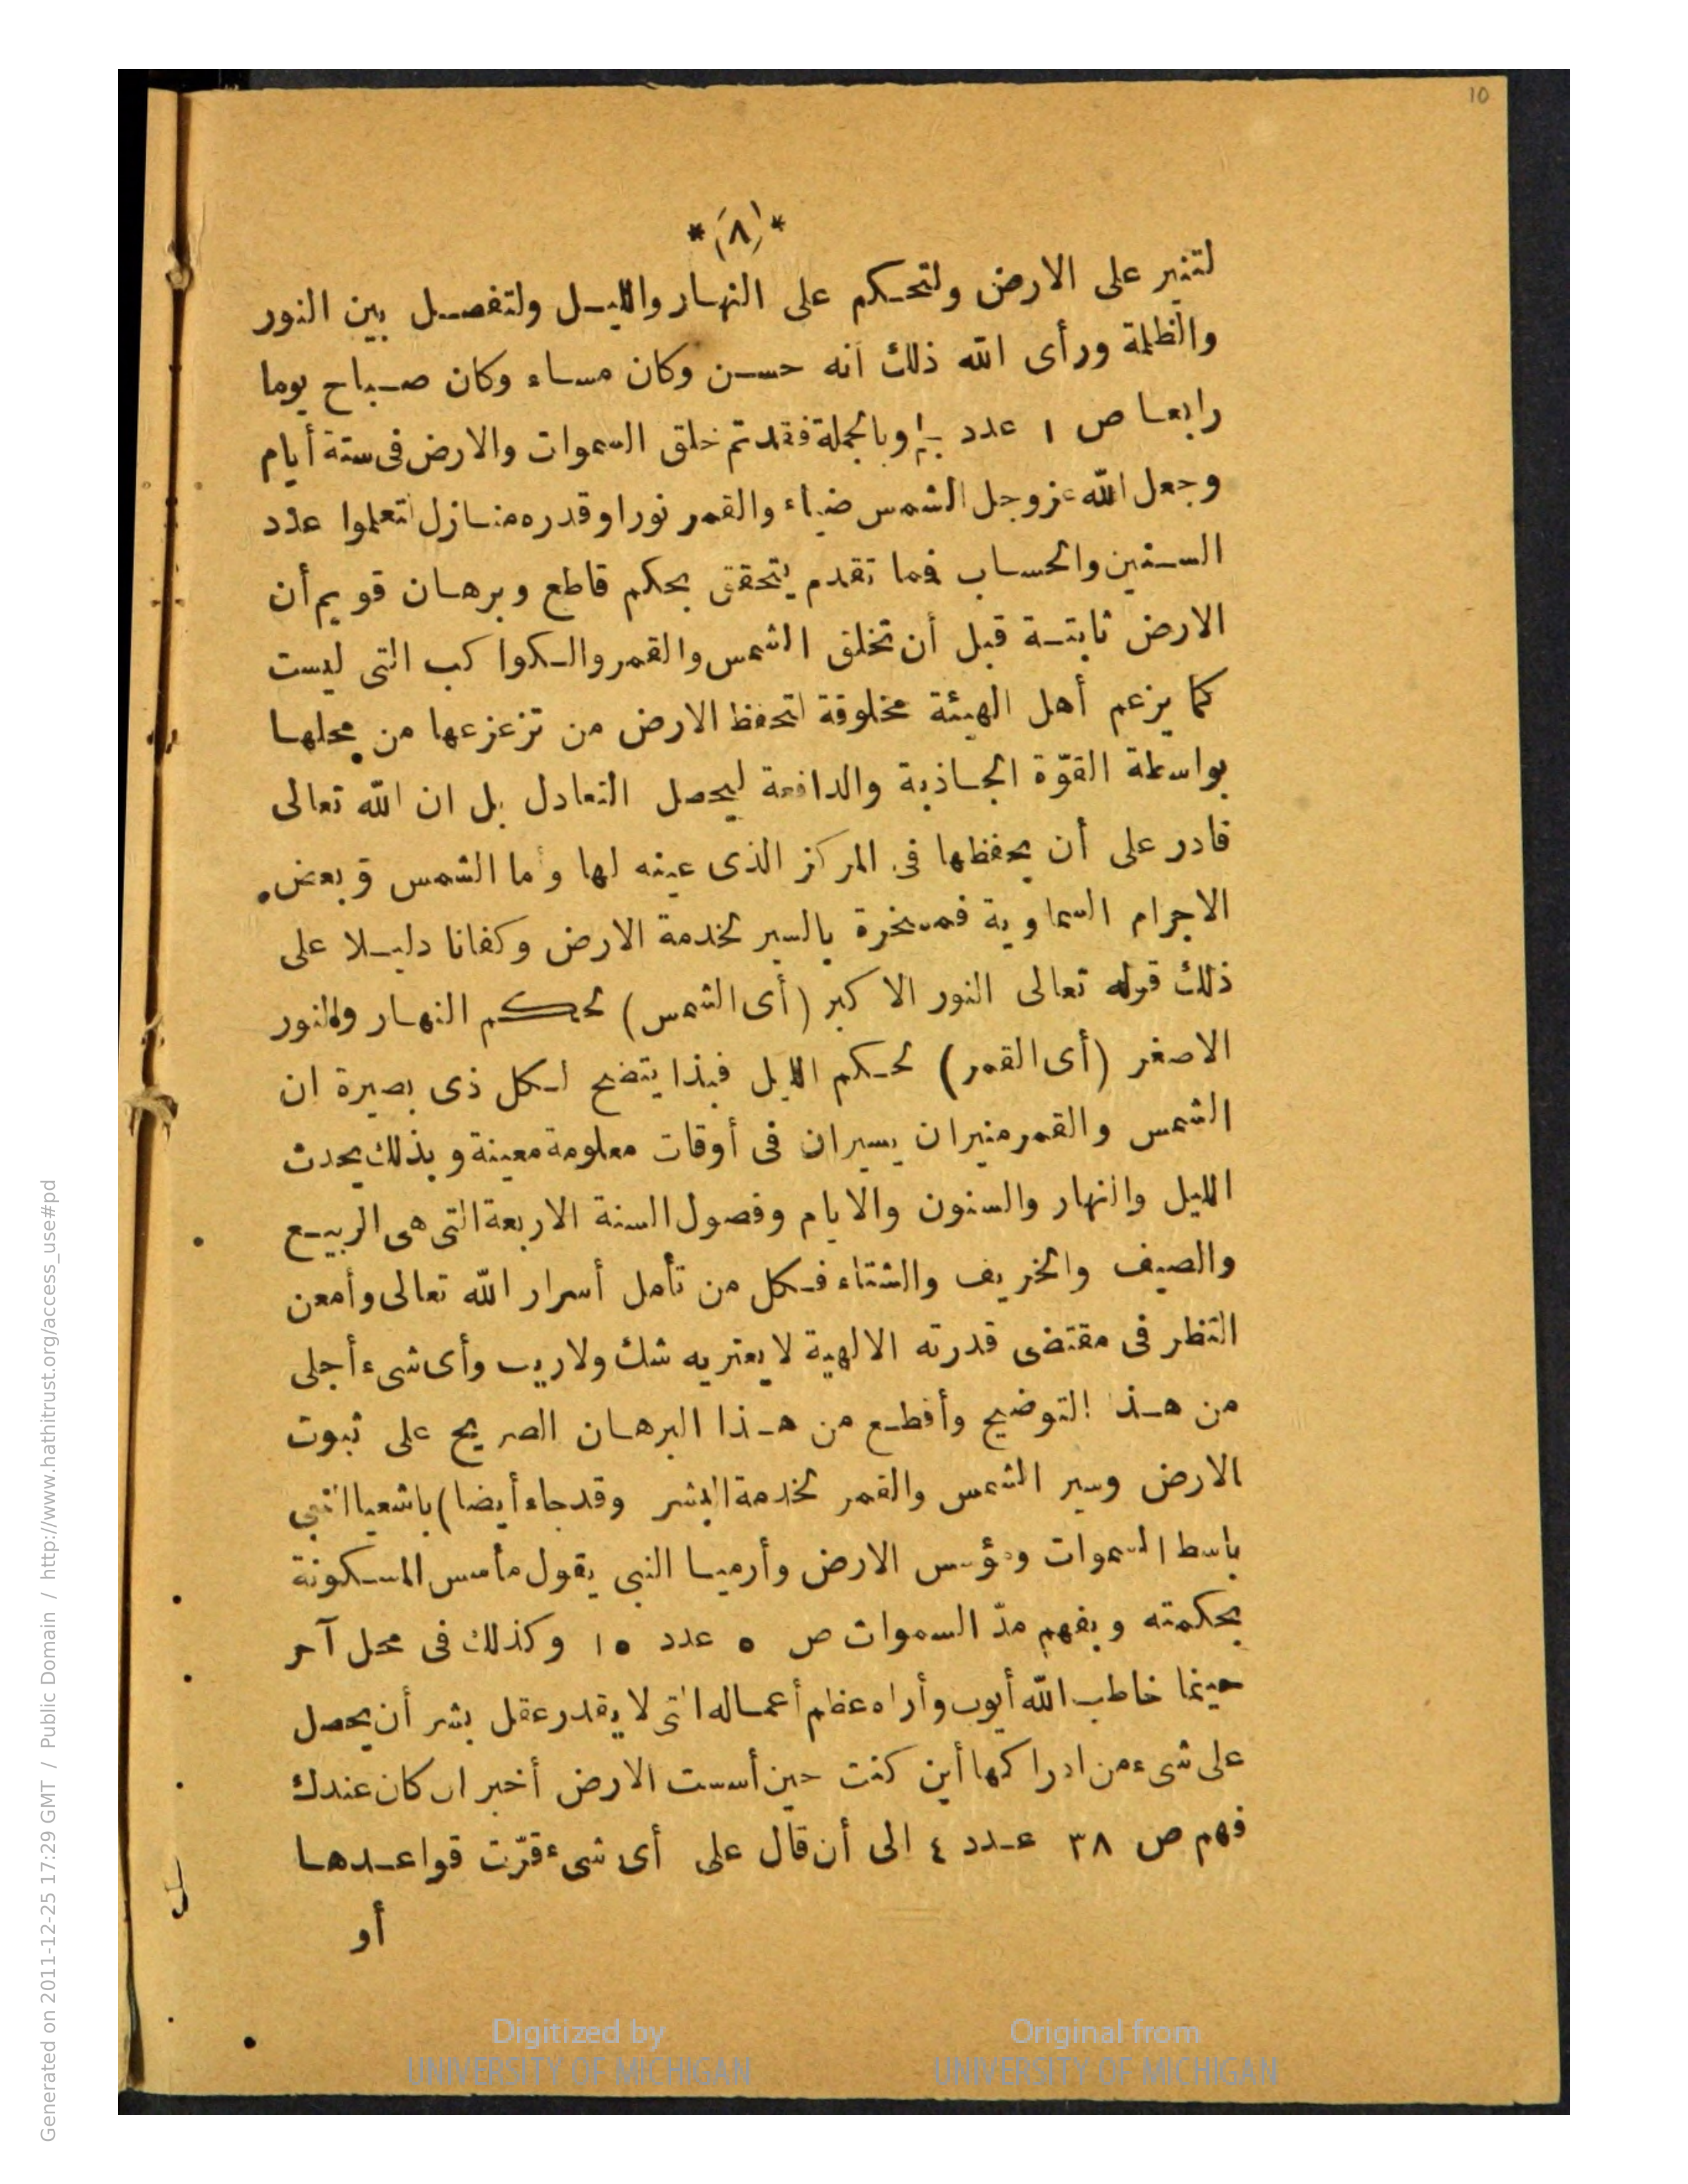 10
*(٨)*
لتنير على الارض ولتحكم على النهار والليل ولتفصل بين النور
والظلمة ورأى الله ذلك انه حسن وكان مساء وكان صباح يوما
رابعا ص ١ عدد وبالجملة فقد تم خلق السموات والارض فى ستة أيام
وجعل الله عز وجل الشمس ضياء والقمر نورا وقدره منازل لتعلموا عدد
السنين والحساب فما تقدم يتحقق بحكم قاطع وبرهان قويم أن
الارض ثابتة قبل أن تخلق الشمس والقمر والكواكب التى ليست
كما يزعم أهل الهيئة مخلوقة لتحفظ الارض من تزعزعها من محلها
بواسطة القوّة الجاذبة والدافعة ليحصل التعادل بل ان الله تعالى
قادر على أن يحفظها فى المركز الذى عينه لها وأما الشمس وبعض
الاجرام السماوية فمسخرة بالسير لخدمة الارض وكفانا دليلا على
ذلك قوله تعالى النور الاكبر (أى الشمس) لحكم النهار والنور
الاصغر (أى القمر) لحكم الليل فبذا يتضح لكل ذى بصيرة ان
الشمس والقمر منيران يسيران فى أوقات معلومة معينة وبذلك يحدث
الليل والنهار والسنون والايام وفصول السنة الاربعة التى هى الربيع
والصيف والخريف والشتاء فكل من تأمل أسرار الله تعالى وأمعن
النظر فى مقتضى قدرته الالهية لا يعتريه شك ولاريب وأى شىء أجلى
من هذا التوضيح وأقطع من هذا البرهان الصريح على ثبوت
الارض وسير الشمس والقمر لخدمة البشر وقد جاء أيضا) باشعيا النبى
باسط السموات ومؤسس الارض وأرميا النبى يقول مأسس المسكونة
بحكمته وبفهم مدّ السموات ص ٥ عدد ١٥ وكذلك فى محل آخر
حينما خاطب الله أيوب وأراه عظم أعماله التى لا يقدر عقل بشر أن يحصل
على شىء من ادراكها أين كنت حين أسست الارض أخبر ان كان عندك
فهم ص ٣٨ عدد ٤ الى أن قال على أى شىء قرّت قواعدها
أو
Digitized by
UNIVERSITY OF MICHIGAN
Original from
UNIVERSITY OF MICHIGAN
Generated on 2011-12-25 17:29 GMT / Public Domain / http://www.hathitrust.org/access_use#pd